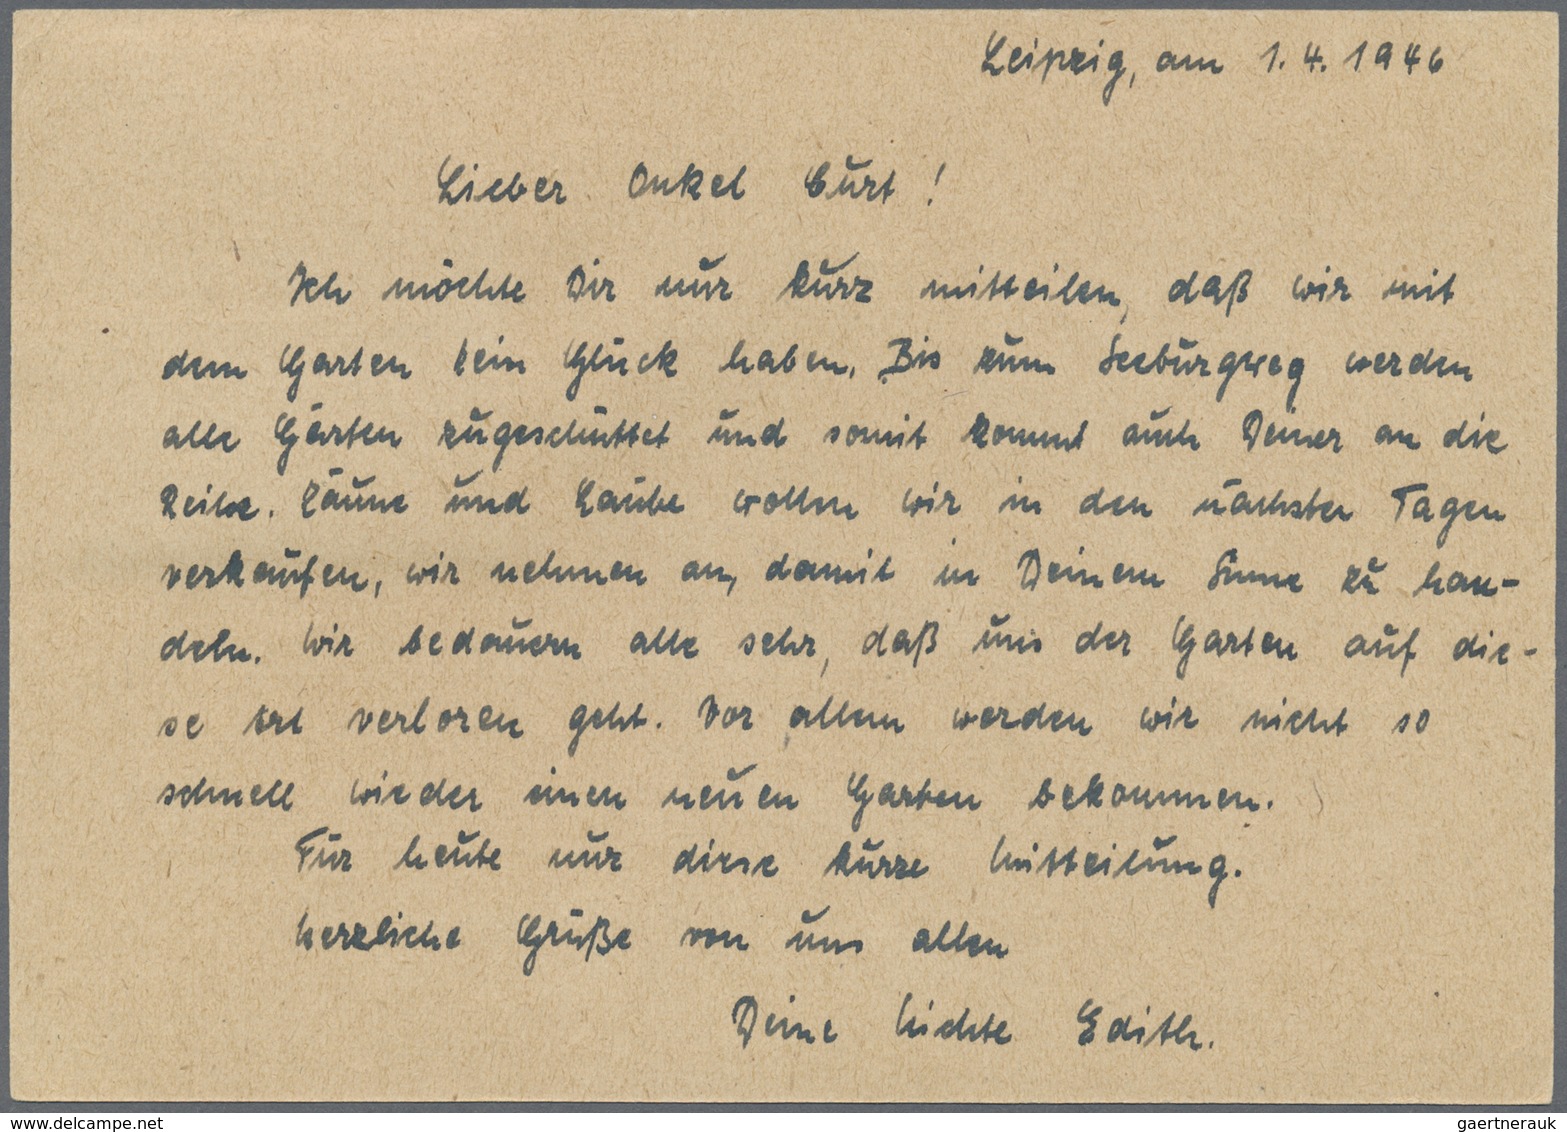 Leipzig, am 1.4.1946
Lieber Onkel Curt!
Ich möchte Dir nur kurz mitteilen, daß wir mit
dem Garten kein Glück haben. Bis zum Seeburgweg werden
alle Gärten zugeschüttet und somit kommt auch Deiner an die
Reihe. Zäune und Laube wollen wir in den nächsten Tagen
verkaufen, wir nehmen an, damit in Deinem Sinne zu han-
deln. Wir bedauern alle sehr, daß uns der Garten auf die-
se Art verloren geht. Vor allem werden wir nicht so
schnell wieder einen neuen Garten bekommen.
Für heute nur diese kurze Mitteilung.
Herzliche Grüße von uns allen
Deine Nichte Edith.
www.delcampe.net
gaertnerauk